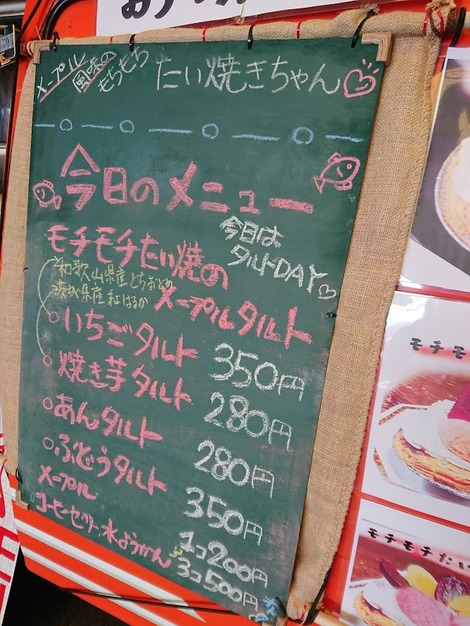 メープル
風味の
もちもち
たい焼きちゃん
今日のメニュー
今日は
タルトDAY
モチモチたい焼の
メープルタルト
和歌山県産とちおとめ
茨城県産紅はるか
いちごタルト 350円
焼き芋タルト 280円
あんタルト 280円
ぶどうタルト 350円
メープル
コーヒーゼリー・水ようかん
1コ200円
3コ500円
モチモ
モチモチたい